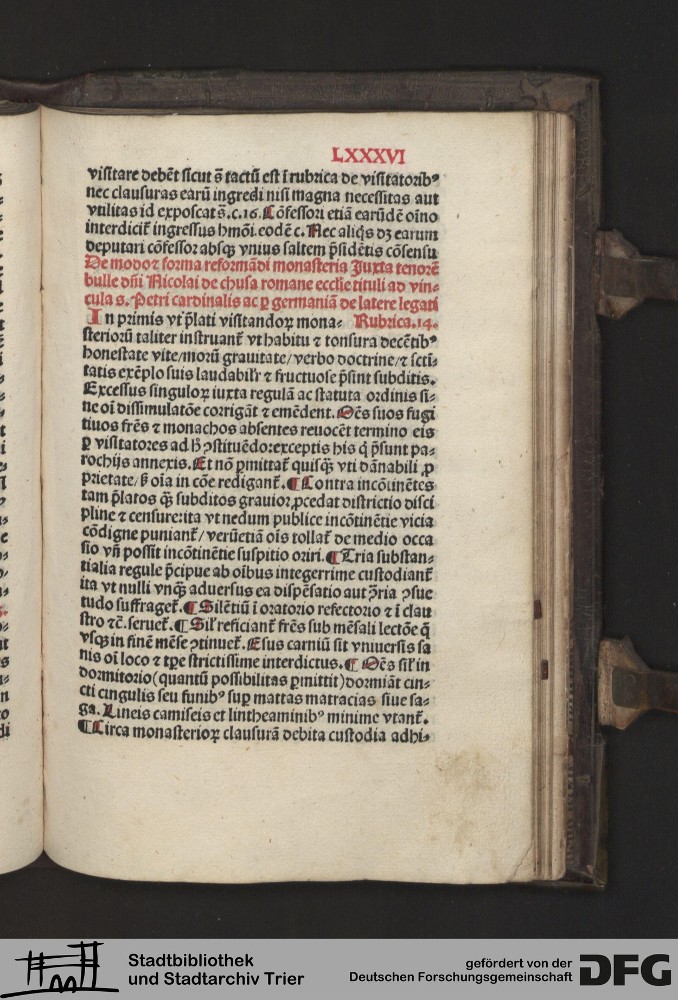 LXXXVI
visitare debēt sicut s̄ tactū est ī rubrica de visitatoribꝰ
nec clausuras earū ingredi nisi magna necessitas aut
vtilitas id exposcat s̄.c.16. Cōfessori etiā earūdē oīno
interdicit̄ ingressus hmōi. eodē c. Nec aliq̇s dꝫ earum
deputari cōfessor absqꝫ vnius saltem p̄sidētis cōsensu
De modo ⁊ forma reformādi monasteria Juxta tenorē
bulle dn̄i Nicolai de chusa romane eccl̄ie tituli ad vin-
cula s. Petri cardinalis ac ꝑ germaniā de latere legati
In primis vt p̄lati visitandoꝝ mona- Rubrica.14.
steriorū taliter instruant̄ vt habitu ⁊ tonsura decētibꝰ
honestate vite/morū grauitate/verbo doctrine/⁊ scti-
tatis exēplo suis laudabilr̄ ⁊ fructuose p̄sint subditis.
Excessus singuloꝝ iuxta regulā ac statuta ordinis si-
ne oī dissimulatōe corrigāt ⁊ emēdent. Oēs suos fugi
tiuos frēs ⁊ monachos absentes reuocēt termino eis
ꝑ visitatores ad h̄ ꝯstituēdo:exceptis his q̇ p̄sunt pa-
rochijs annexis. Et nō ꝑmittāt quisqꝫ vti dānabili ꝓ
prietate/ß oīa in cōe redigant̄. ¶ Contra incōtinētes
tam p̄latos qꝫ subditos grauior ꝓcedat districtio disci
pline ⁊ censure:ita vt nedum publice incōtinētie vicia
cōdigne puniant̄/verūetiā oīs tollat̄ de medio occa
sio vn̄ possit incōtinētie suspitio oriri. ¶ Tria substan-
tialia regule p̄cipue ab oībus integerrime custodiant̄
ita vt nulli vnqꝫ aduersus ea dispēsatio aut ꝯria ꝯsue
tudo suffraget̄. ¶ Silētiū ī oratorio refectorio ⁊ ī clau
stro ⁊c̄. seruet̄. ¶ Sil̄r reficiant̄ frēs sub mēsali lectōe q̄
vsqꝫ in finē mēse ꝯtinuet̄. Esus carniū sit vniuersis sa
nis oī loco ⁊ tꝑe strictissime interdictus. ¶ Oēs sil̄r in
dormitorio (quantū possibilitas ꝑmittit) dormiāt cin-
cti cingulis seu funibꝰ suꝑ mattas matracias siue sa-
ga. Lineis camiseis et lintheaminibꝰ minime vtant̄.
¶ Circa monasterioꝝ clausurā debita custodia adhi-
Stadtbibliothek
und Stadtarchiv Trier
gefördert von der
Deutschen Forschungsgemeinschaft
DFG